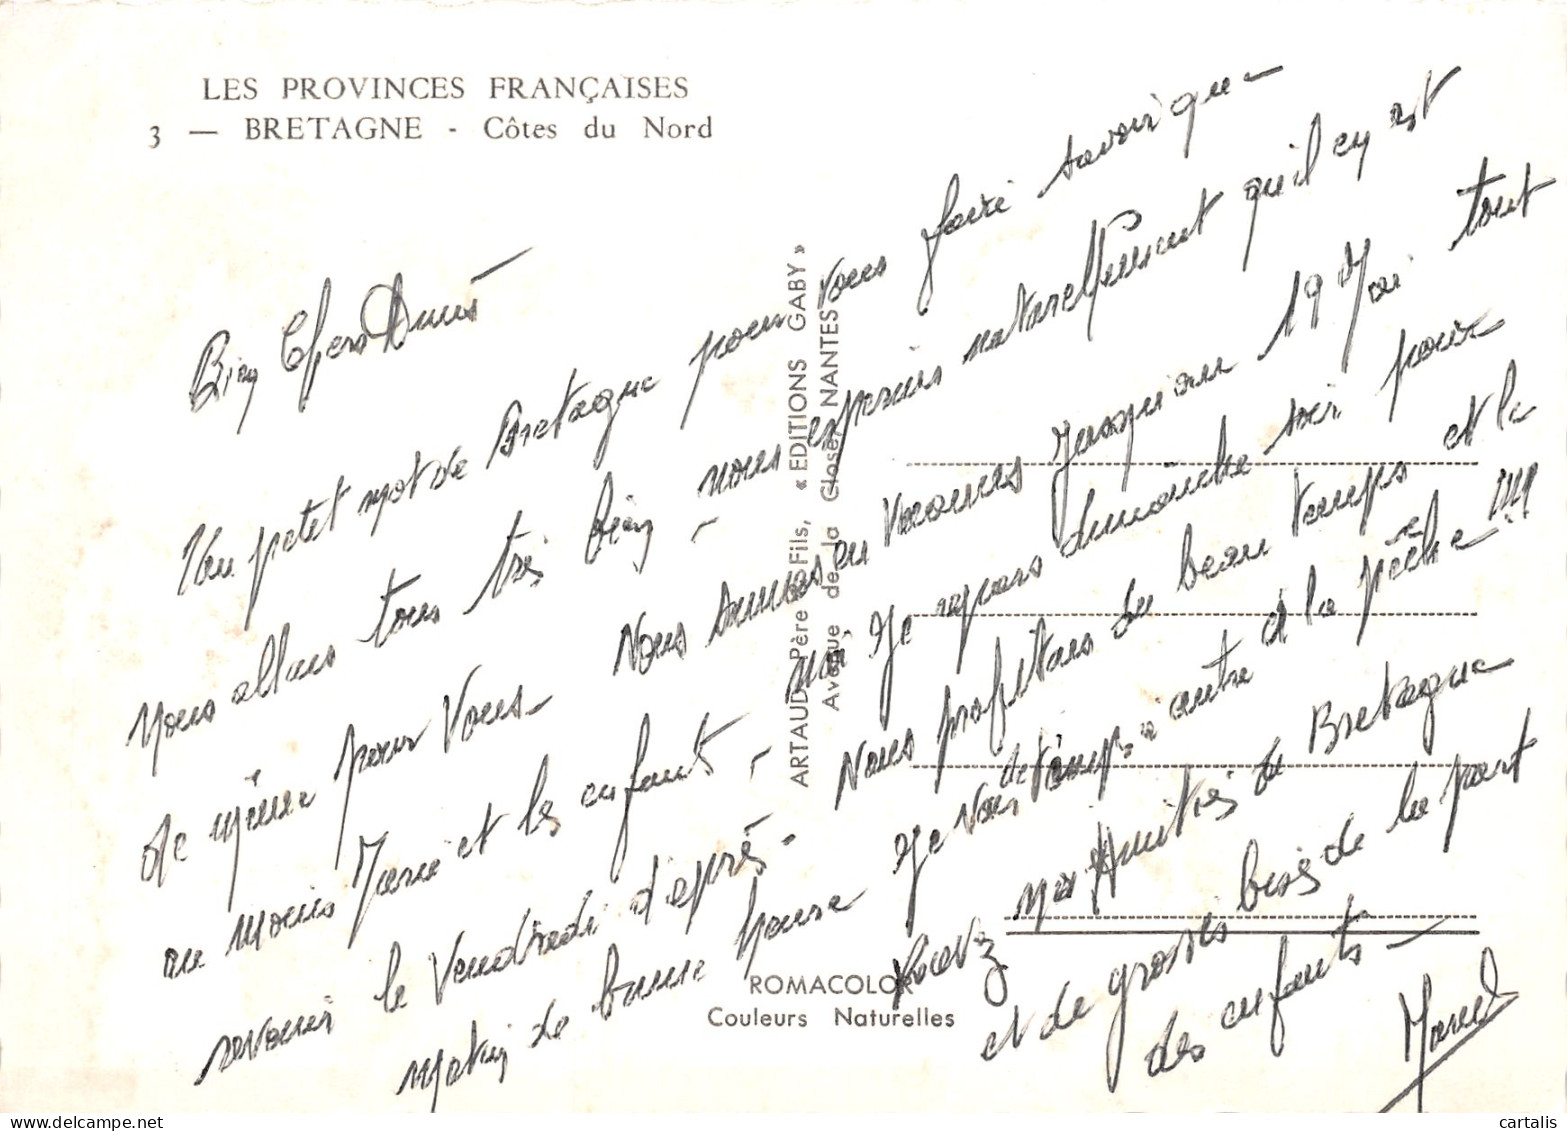 LES PROVINCES FRANÇAISES
3 — BRETAGNE - Côtes du Nord
Bien Chers Amis
Un petit mot de Bretagne pour vous faire savoir que
nous allons tous très bien - nous espérons naturellement qu'il en est
de même pour Vous - Nous sommes en Vacances jusqu'au 19 Mai tout
au moins Marie et les enfants - moi, je repars dimanche soir pour
revenir le Vendredi d'après - Nous profitons du beau temps et le
matin de bonne heure je vous de temps à autre et la pêche !!!
Recevez nos Amitiés de Bretagne
et de grosses bises de la part
des enfants -
Marcel
ARTAUD Père & Fils, « EDITIONS GABY »
Avenue de la Close, NANTES
ROMACOLOR
Couleurs Naturelles
cartalis